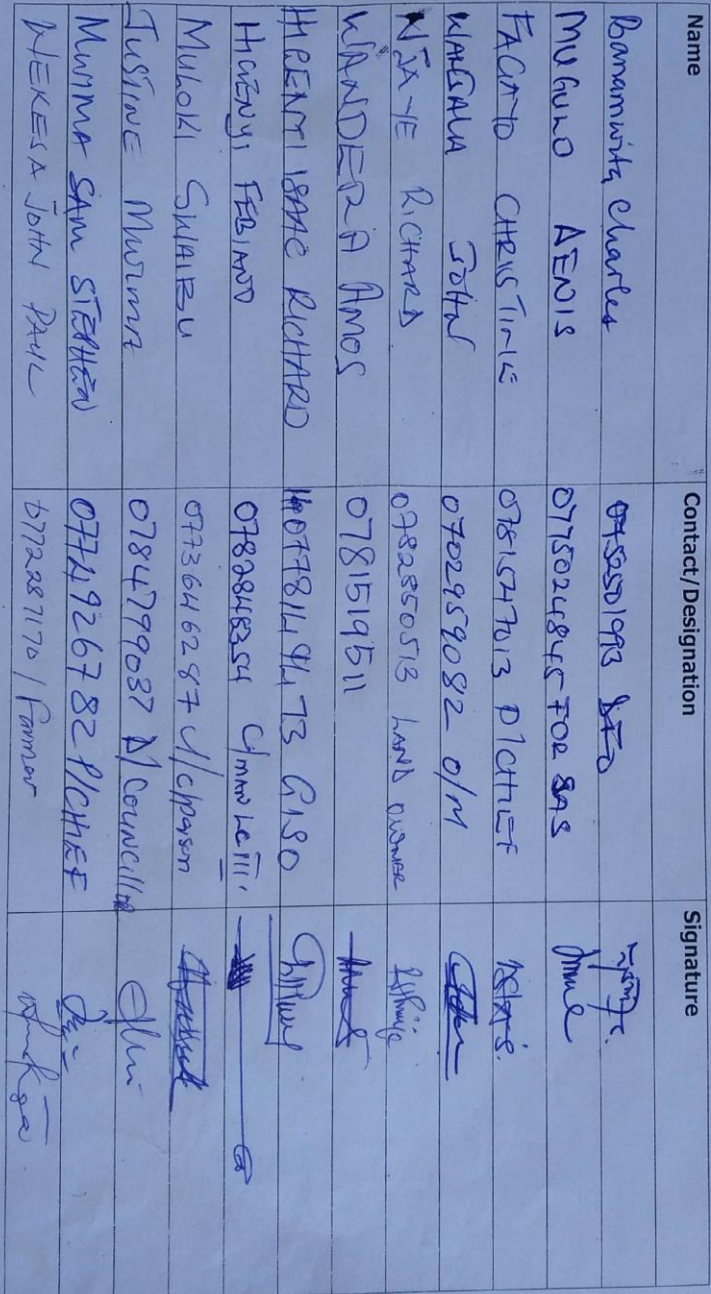 Name Contact/Designation Signature
Bamamwita Charles 0752501993 DFO
MUGULO DENIS 0775024845 FOR SAS
FAGAYO CHRISTINE 0781547013 P/CHIEF
WANGALA JOHN 0702959082 O/M
NJAYE RICHARD 0782550513 LAND OWNER
WANDERA AMOS 0781519511
RICHARD ISAAC 0778149473 GISO
FEBIANO 0782848354 C/man LCIII
MULOKI SWAIBU 0773646287 V/C/person
JUSTINE MWIMA 0784799037 D/Councillor
MWIMA SAM STEPHEN 0774926782 P/CHIEF
WEKESA JOHN PAUL 0772287170 / Farmer